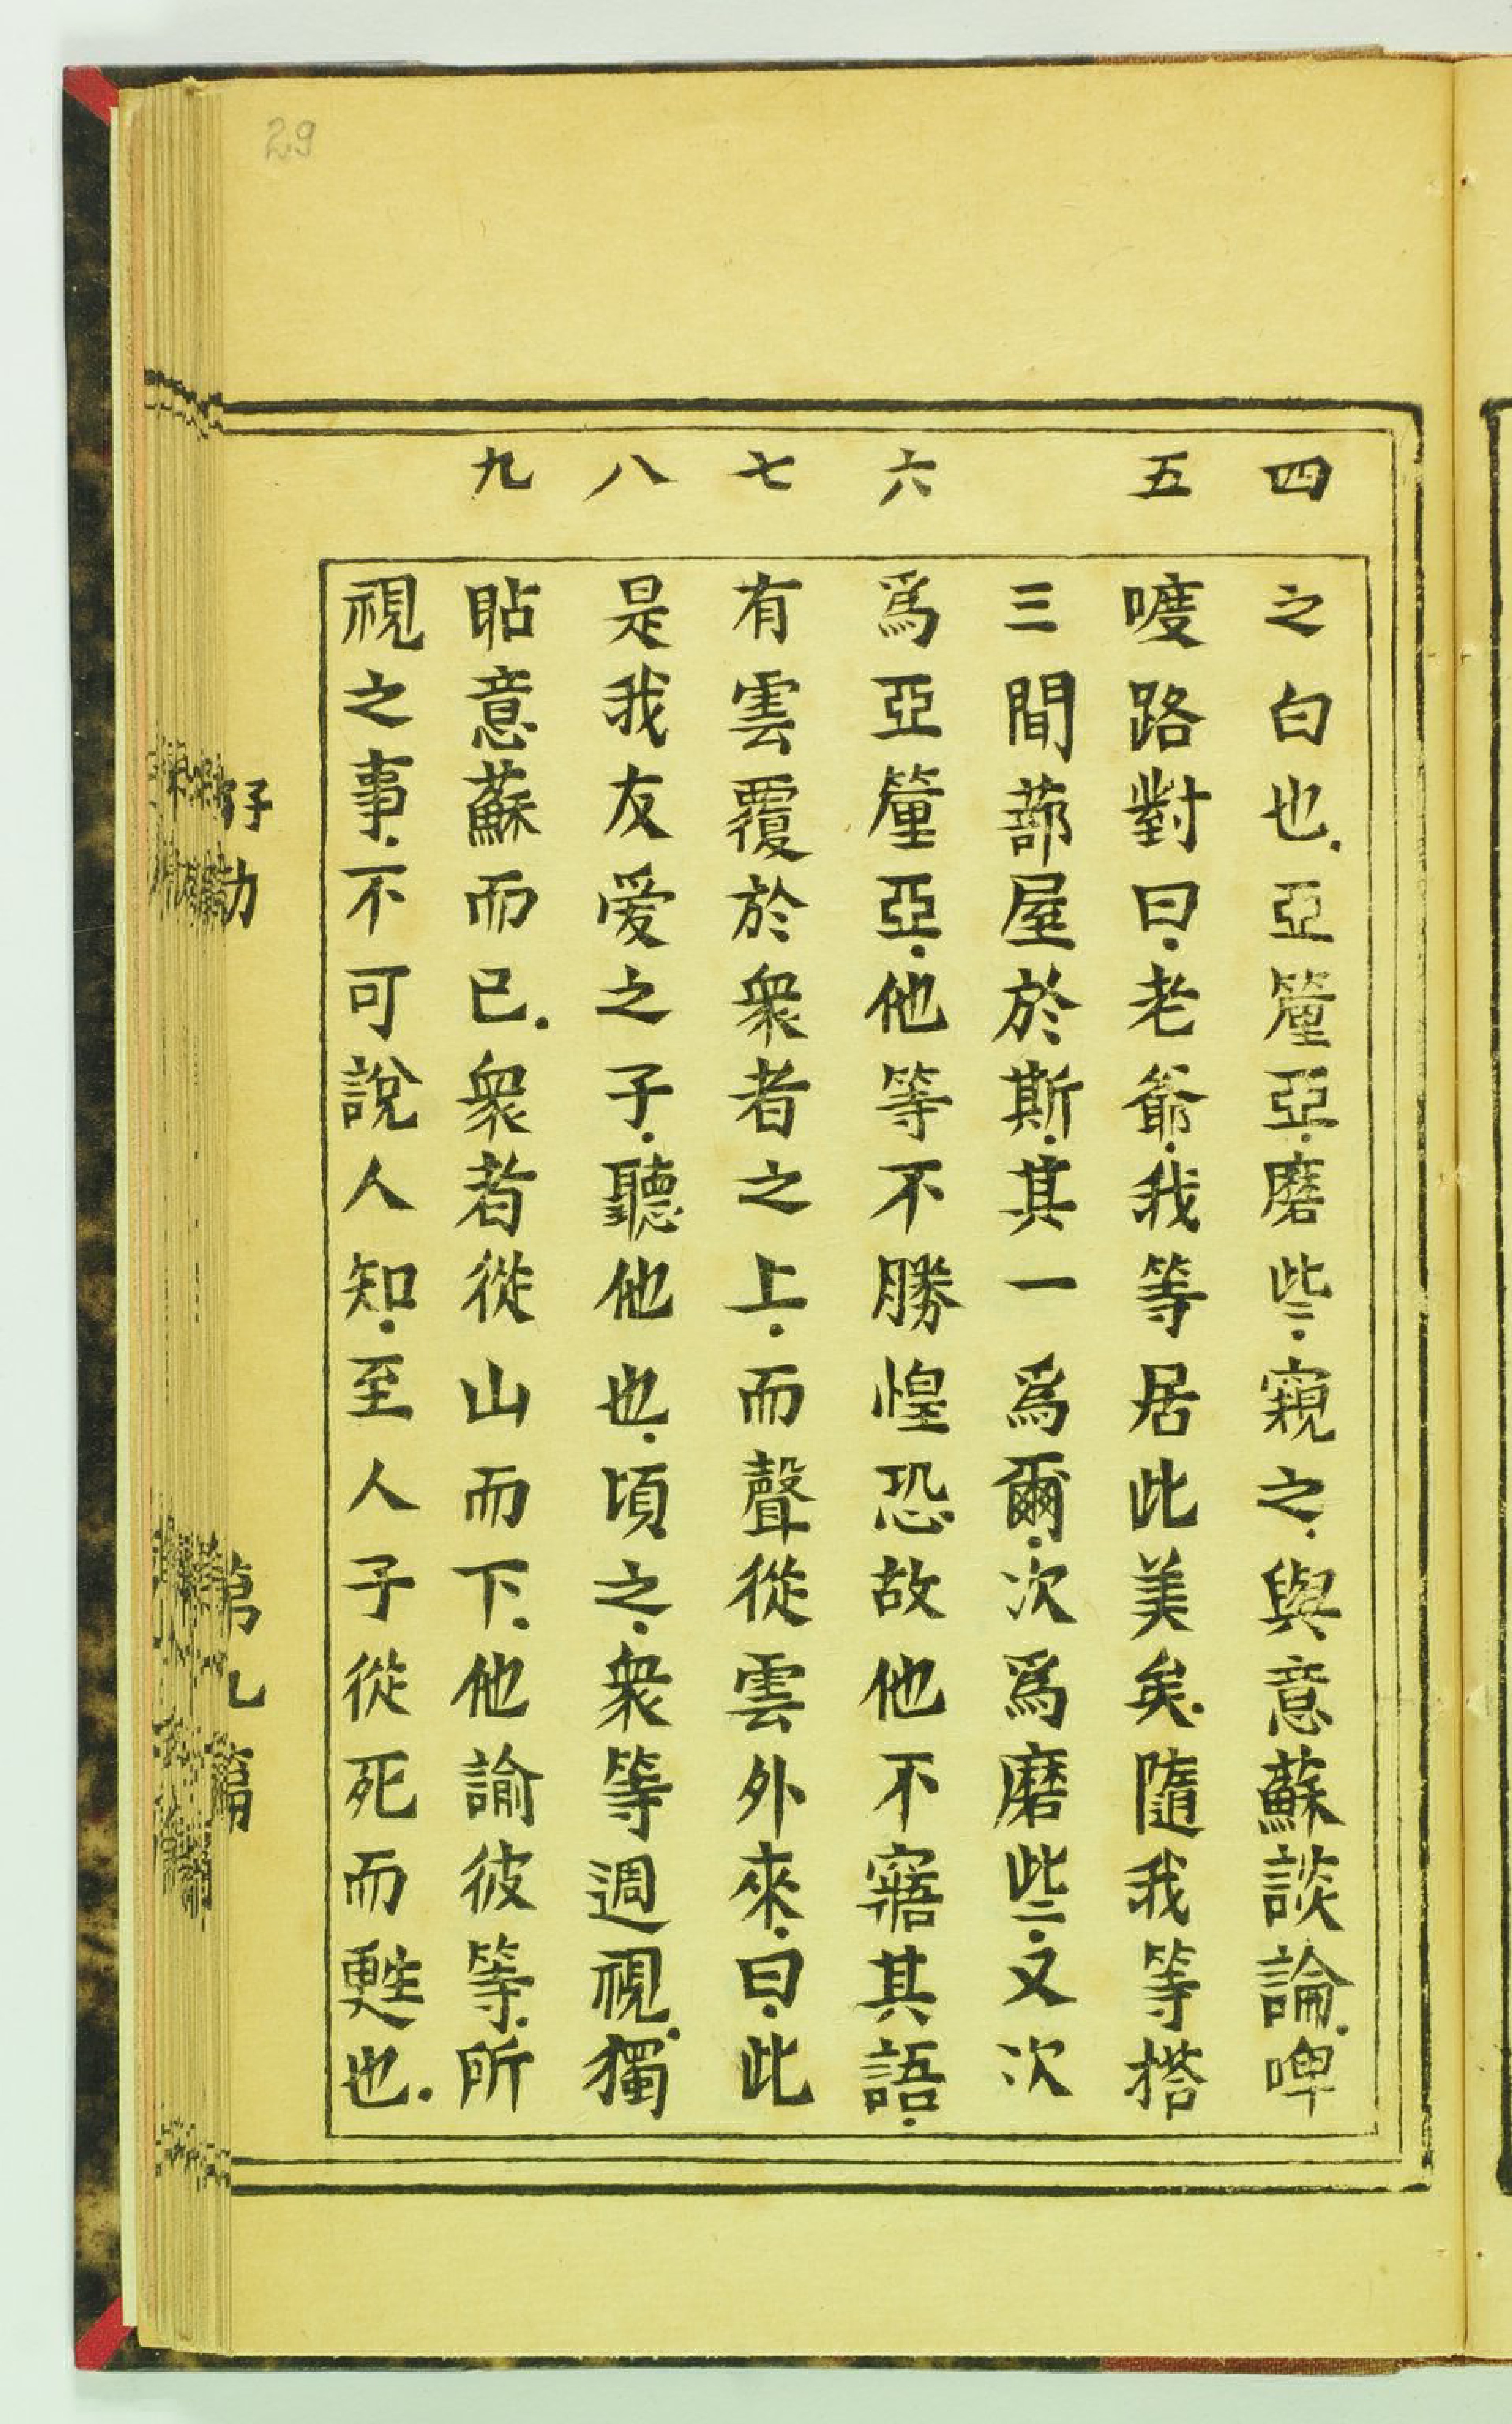 29
四 五 六 七 八 九
之白也.亞𨤲亞.磨些.窺之.與意蘇談論.啤
喥路對曰.老爺.我等居此美矣.隨我等搭
三間蔀屋於斯.其一爲爾.次爲磨些.又次
爲亞𨤲亞.他等不勝惶恐.故他不寤其語.
有雲覆於衆者之上.而聲從雲外來.曰.此
是我友愛之子.聽他也.頃之.衆等週視.獨
貼意蘇而已.衆者從山而下.他諭彼等.所
視之事.不可說人知.至人子從死而甦也.
第九篇